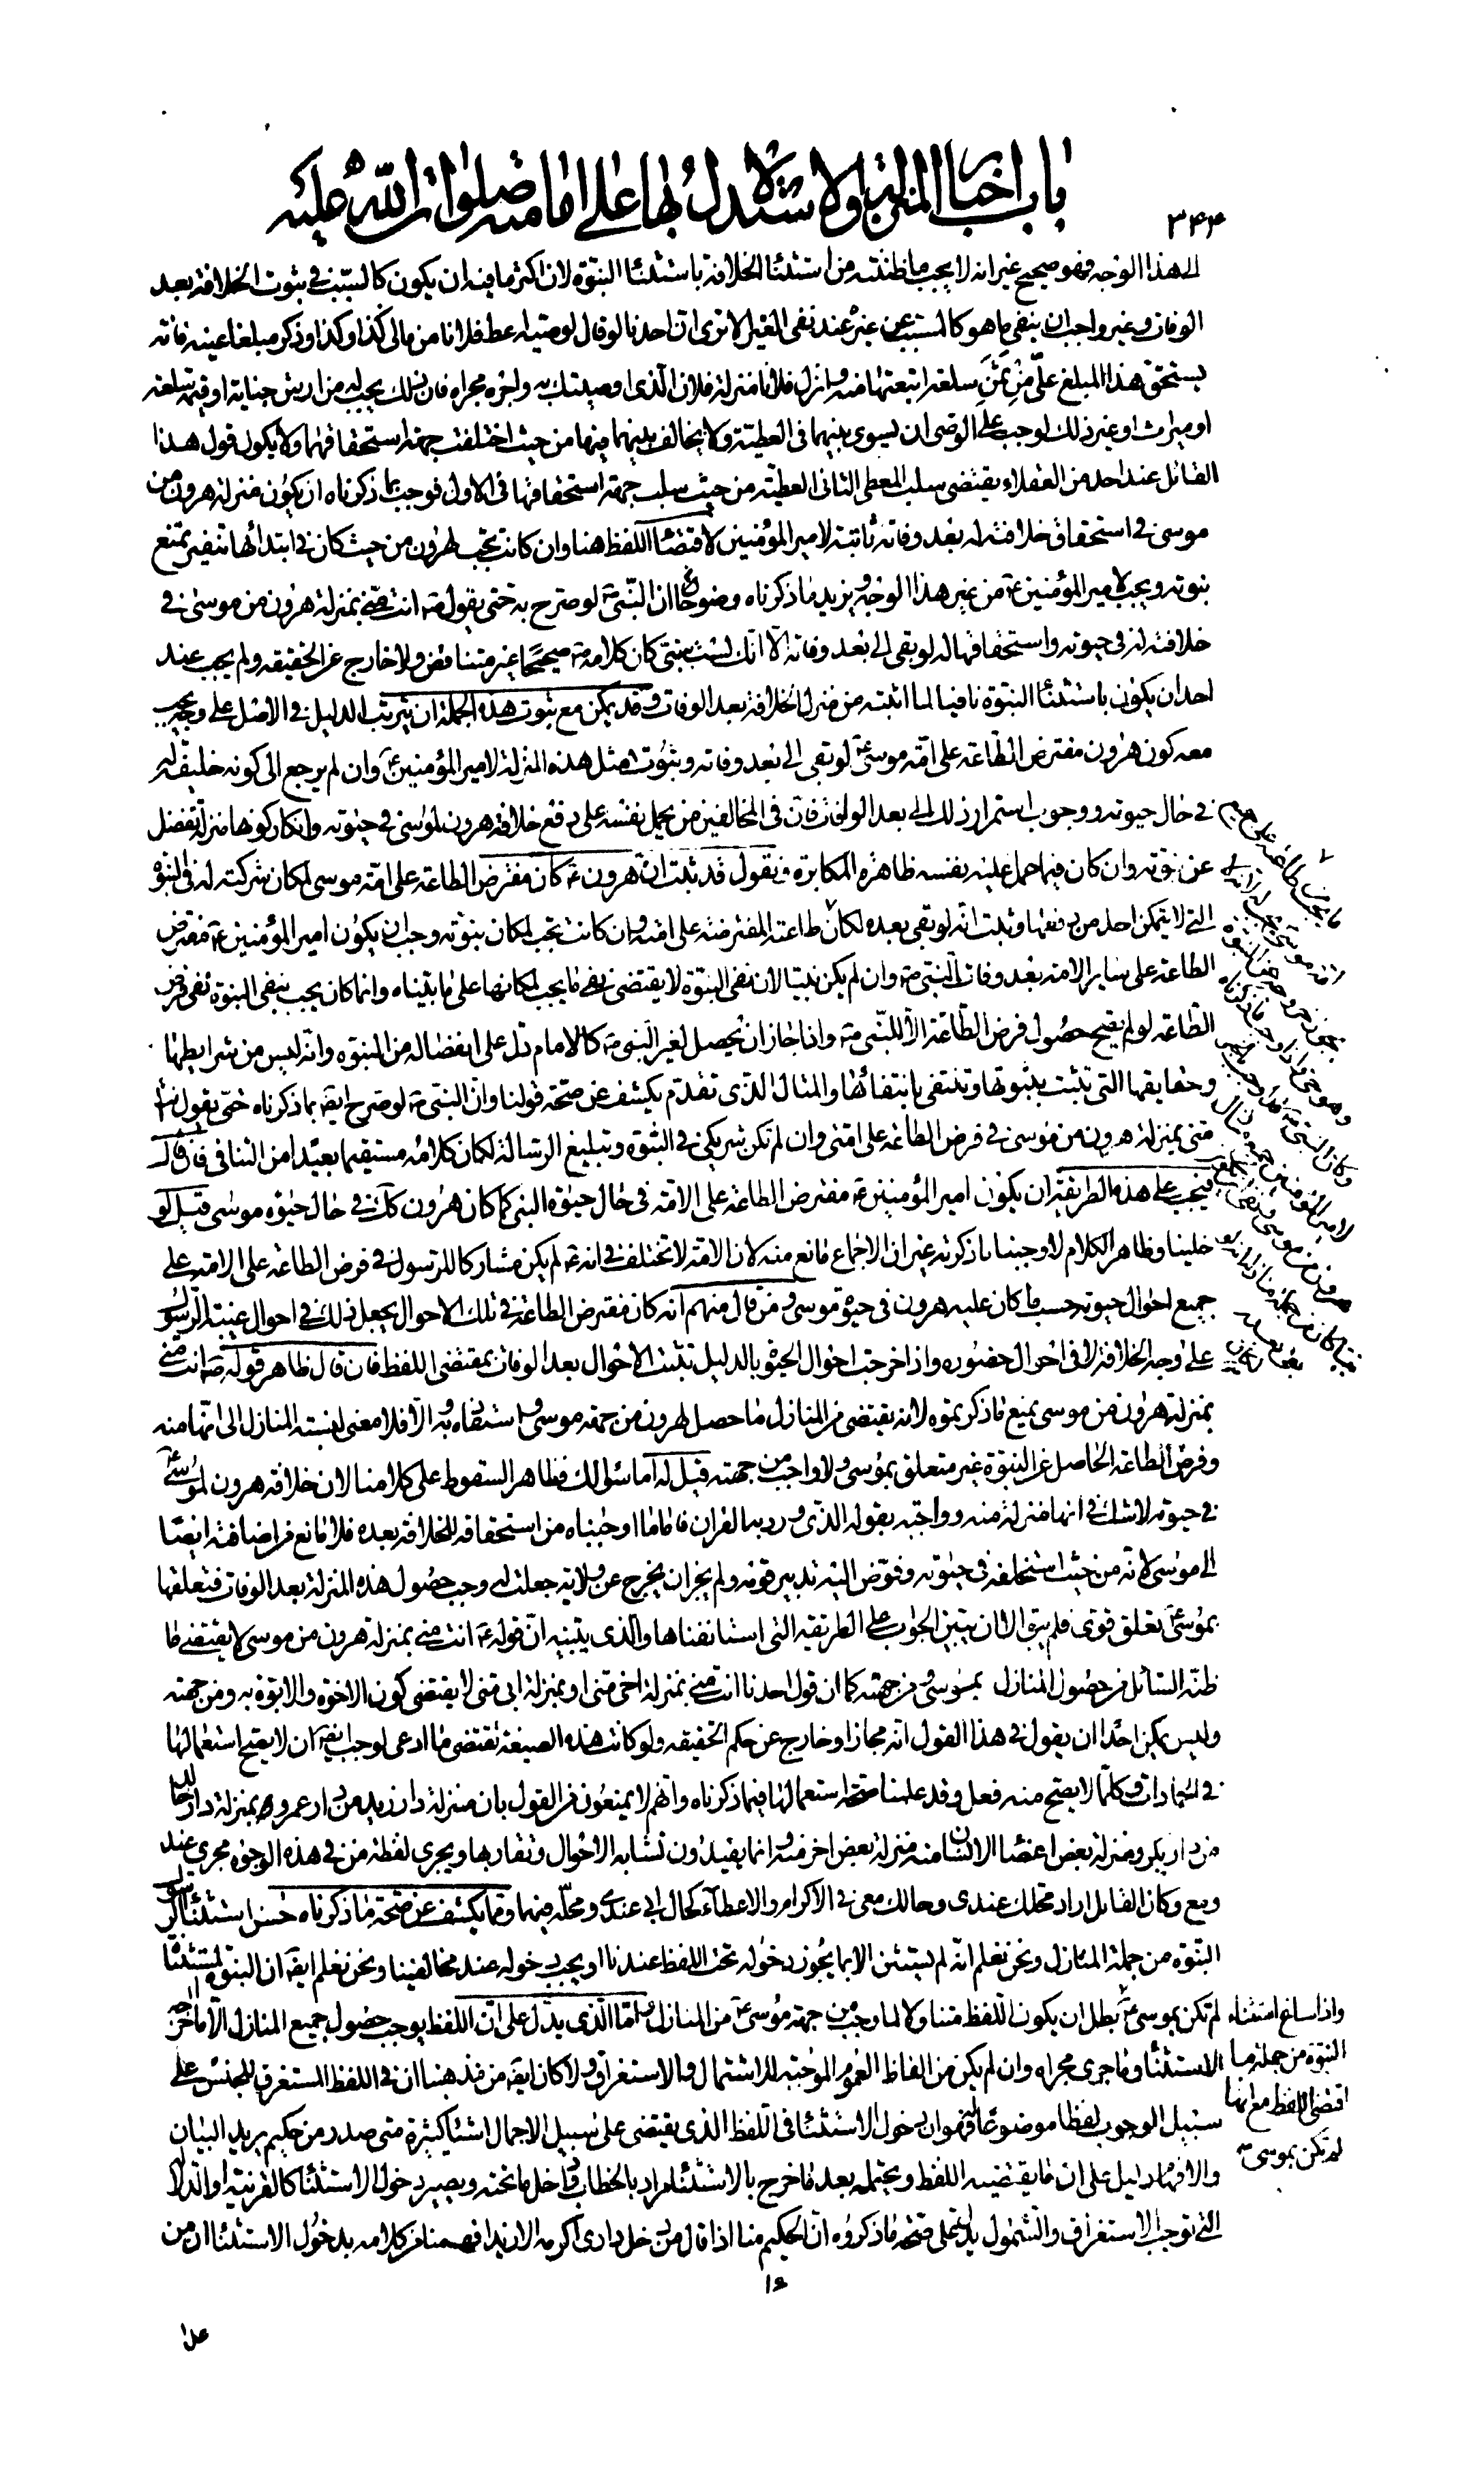 باب اخبار المنزلة والاستدلال بها على امامته صلوات الله عليه
٣٤٤
الى هذا الوجه فهو صحيح غير انه لا يجب ما ظننته من استثناء الخلافة باستثناء النبوّة لان اكثر ما فيه ان يكون كالسّبب في ثبوت الخلافة بعد
الوفات وغير واجب ان ينفى ما هو كالمسبب عن غيره عند نفى الغير الا ترى ان احدنا لو قال لوصيه اعط فلانا من مالى كذا وكذا وذكر مبلغا عينه فانه
يستحق هذا المبلغ علىّ من ثمن سلعة ابتعتها منه وانزل فلانا منزلة فلان الّذى اوصيتك به واجره مجراه فان ذلك يجب له من ارش جناية او قيمة متلفه
او ميراث او غير ذلك لوجب على الوصى ان يسوى بينهما فى العطيّة ولا يخالف بينهما فيها من حيث اختلفت جهة استحقاقهما ولا يكون قول هذا
القائل عند احد من العقلاء يقتضى سلب المعطى الثانى العطيّة من حيث سلب جهة استحقاقها فى الاول فوجب بما ذكرناه ان يكون منزلة هرون من
موسى فى استحقاق خلافته له بعد وفاته ثابتة لامير المؤمنين لاقتضاء اللفظ هنا وان كانت تجب لهرون من حيث كان فى ابتدائها تنفير يمنع
نبوته ويجب لامير المؤمنين ع من غير هذا الوجه ويزيد ما ذكرناه وضوحا ان النّبىّ ص لو صرح به حتى يقول ص انت منّى بمنزلة هرون من موسى فى
خلافته له فى حيوته واستحقاقها له لو بقى الى بعد وفاته الّا انّك لست بنبىّ كان كلامه ص صحيحًا غير متناقض ولا خارج عن الحقيقه ولم يجب عند
احد ان يكون باستثناء النبوّة نافيا لما اثبته من منزلة الخلافة بعد الوفات وقد يمكن مع ثبوت هذه الجملة ان يترتب الدليل فى الاصل على وجه يجب
معه كون هرون مفترض الطّاعة على امّة موسى ع لو بقى الى بعد وفاته وثبوت مثل هذه المنزلة لامير المؤمنين ع وان لم يرجع الى كونه خليفة له
فى حال حيوته ووجوب استمرار ذلك الى بعد الوفات فان فى المخالفين من يحمل نفسه على دفع خلافة هرون لموسى فى حيوته وانكار كونها منزلة تفضل
عن نبوّته وان كان فيما حمل عليه نفسه ظاهره المكابرة فنقول قد ثبت ان هرون ع كان مفترض الطاعة على امّة موسى لمكان شركته له فى النبوّة
التى لا يتمكن احد من دفعها وثبت انّه لو بقى بعده لكان طاعته المفترضة على امّته وان كانت تجب لمكان نبوّته وجب ان يكون امير المؤمنين ع مفترض
الطاعة على سائر الامة بعد وفات النّبى ص وان لم يكن نبيّا لان نفى النبوّة لا يقتضى نفى ما يجب لمكانها على ما بيّناه وانما كان يجب بنفى النبوة نفى فرض
الطّاعة لو لم يصح حصول فرض الطّاعة الّا للنّبى ص واذا جاز ان يحصل لغير النّبى ص كالامام دل على انفصاله من النبوّه وانّه ليس من شرايطها
وحقايقها التى تثبت بثبوتها وتنتفى بانتفائها والمثال الّذى تقدّم يكشف عن صحّة قولنا وان النبىّ ص لو صرح ايضا بما ذكرناه حتى يقول انت
منى بمنزلة هرون من موسى فى فرض الطاعة على امّتى وان لم تكن شريكى فى النّبوّة وتبليغ الرسالة لكان كلامه مستقيما بعيدا من التنافى فان قال
فيجب على هذه الطريقة ان يكون امير المؤمنين ع مفترض الطاعة على الامّة فى حال حيوة النبى كما كان هرون كك فى حال حيوة موسى قيل لو
خلينا وظاهر الكلام لاوجبنا ما ذكرته غير ان الاجماع مانع منه لان الامّة لا تختلف فى انه ع لم يكن مشاركا للرسول فى فرض الطاعة على الامة على
جميع احوال حيوته حسب ما كان عليه هرون فى حيوة موسى ومن قال منهم انّه كان مفترض الطاعة فى تلك الاحوال يجعل ذلك فى احوال غيبة الرّسول
على وجه الخلافة لا فى احوال حضوره واذا خرجت احوال الحيوة بالدليل تثبت الاحوال بعد الوفات بمقتضى اللفظ فان قال ظاهر قوله ص انت منّى
بمنزلة هرون من موسى يمنع ما ذكرتموه لانه يقتضى من المنازل ما حصل لهرون من جهة موسى واستفاده به والّا فلا معنى لنسبة المنازل الى انها منه
وفرض الطاعة الحاصل عن النبوّة غير متعلق بموسى ولا واجب من جهته قيل له اما سؤالك فظاهر السقوط على كلامنا لان خلافة هرون لموسى ع
فى حيوته لا شك فى انها منزلة منه وواجبة بقوله الّذى ورد به القران فاما ما اوجبناه من استحقاقه للخلافة بعده فلا مانع من اضافته ايضا
الى موسى لانّه من حيث استخلفه فى حيوته وفوّض اليه تدبير قومه ولم يجز ان يخرج عن ولاية جعلت له وجب حصول هذه المنزلة بعد الوفات فتعلقها
بموسى ع تعلق قوى فلم يبق الّا ان يتبين الجواب على الطريقه التى استانفناها والّذى يبيّنه انّ قوله ع انت منى بمنزلة هرون من موسى لا يقتضى ما
ظنّه السّائل من حصول المنازل بموسى ومن جهته كما ان قول احدنا انت منى بمنزلة اخى منى او بمنزلة ابى منى لا يقتضى كون الاخوّة والابوّة به ومن جهته
وليس يمكن احدًا ان يقول فى هذا القول انّه مجاز او خارج عن حكم الحقيقه ولو كانت هذه الصيغة تقتضى ما ادعى لوجب ايضا ان لا يصح استعمالها
فى الجمادات وكلّما لا يصح منه فعل وقد علمنا صحّة استعمالها فيما ذكرناه وانّهم لا يمنعون من القول بان منزلة دار زيد من دار عمرو بمنزلة دار خالد
من دار بكر ومنزلة بعض اعضاء الانسان منه منزلة بعض اخر منه وانما يفيدون تشابه الاحوال وتقاربها ويجرى لفظة من فى هذه الوجوه مجرى عند
ومع وكان القائل اراد محلك عندى وحالك معى فى الاكرام والاعطاء كحال ابى عندى ومحلّه فيهما ومما يكشف عن صحّة ما ذكرناه حسن استثناء الرّسول
النبّوة من جملة المنازل ونحن نعلم انّه لم يستثن الا ما يجوز دخوله تحت اللفظ عندنا او يجب دخوله عند مخالفينا ونحن نعلم ايضا ان النبوّة المستثناة
لم تكن بموسى ع بطل ان يكون اللّفظ متناولا لما وجب من جهة موسى ع من المنازل واما الّذى يدّل على ان اللفظ يوجب حصول جميع المنازل الّا ما اخرجه
الاستثناء وما جرى مجراه وان لم يكن من الفاظ العموم الموجبة للاشتمال والاستغراق ولا كان ايضا من مذهبنا ان فى اللفظ المستغرق للجنس على
سبيل الوجوب لفظا موضوعًا له فهو ان دخول الاستثناء فى اللّفظ الذى يقتضى على سبيل الاجمال اشياء كثيرة متى صدر من حكيم يريد البيان
والافهام دليل على ان ما يقتضيه اللفظ ويحتمله بعد ما خرج بالاستثناء مراد بالخطاب وداخل ما تحته ويصير دخول الاستثناء كالقرينة او الدّلالة
التى توجب الاستغراق والشمول يدل على صحّة ما ذكروه انّ الحكيم منا اذا قال من دخل دارى اكرمه الا زيدا فهمنا من كلامه بدخول الاستثناء ان من
واذا ساغ استثناء
النبّوة من جملة ما
اقتضى اللفظ مع انها
لم تكن بموسى ع
١٤
عدا